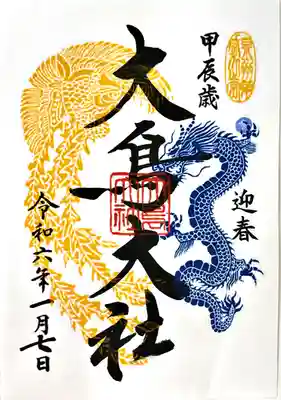 甲辰歳
迎春
大鳥大社
令和六年一月七日